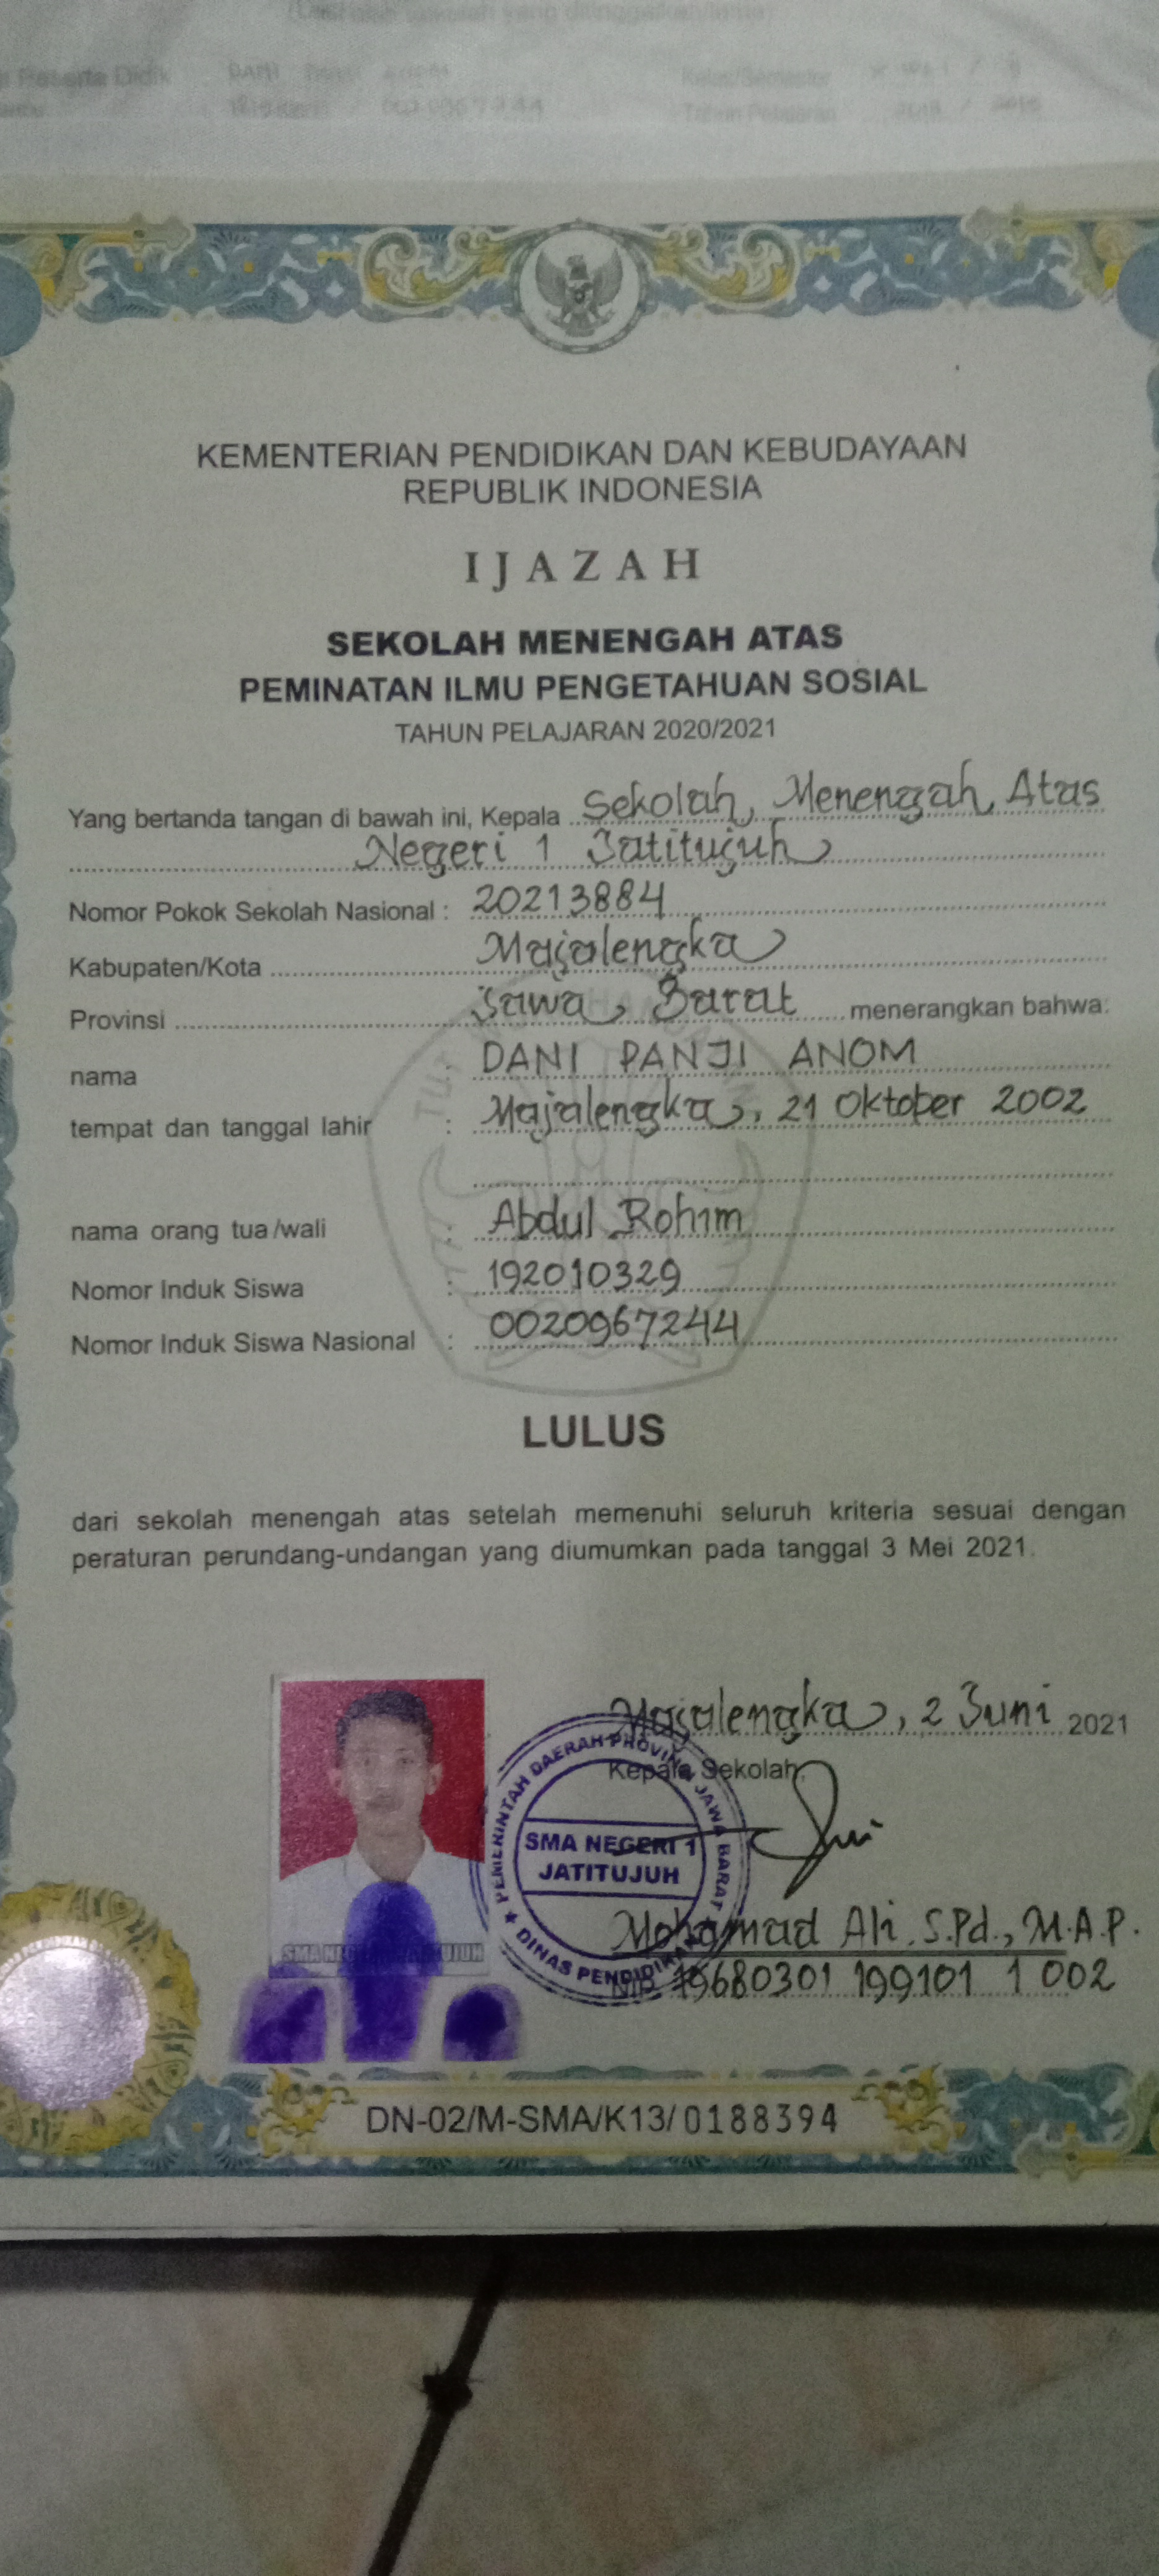 Peserta Didik
Kelas/Semester
Tahun Pelajaran
KEMENTERIAN PENDIDIKAN DAN KEBUDAYAAN
REPUBLIK INDONESIA
IJAZAH
SEKOLAH MENENGAH ATAS
PEMINATAN ILMU PENGETAHUAN SOSIAL
TAHUN PELAJARAN 2020/2021
Yang bertanda tangan di bawah ini, Kepala Sekolah Menengah Atas
Negeri 1 Jatitujuh
Nomor Pokok Sekolah Nasional : 20213884
Kabupaten/Kota Majalengka
Provinsi Jawa Barat menerangkan bahwa:
nama : DANI PANJI ANOM
tempat dan tanggal lahir : Majalengka, 21 Oktober 2002
nama orang tua/wali : Abdul Rohim
Nomor Induk Siswa : 192010329
Nomor Induk Siswa Nasional : 0020967244
LULUS
dari sekolah menengah atas setelah memenuhi seluruh kriteria sesuai dengan
peraturan perundang-undangan yang diumumkan pada tanggal 3 Mei 2021.
Majalengka, 2 Juni 2021
Kepala Sekolah,
PEMERINTAH DAERAH PROVINSI JAWA BARAT
SMA NEGERI 1
JATITUJUH
DINAS PENDIDIKAN
Mohamad Ali. S.Pd., M.A.P.
NIP. 19680301 199101 1 002
DN-02/M-SMA/K13/0188394